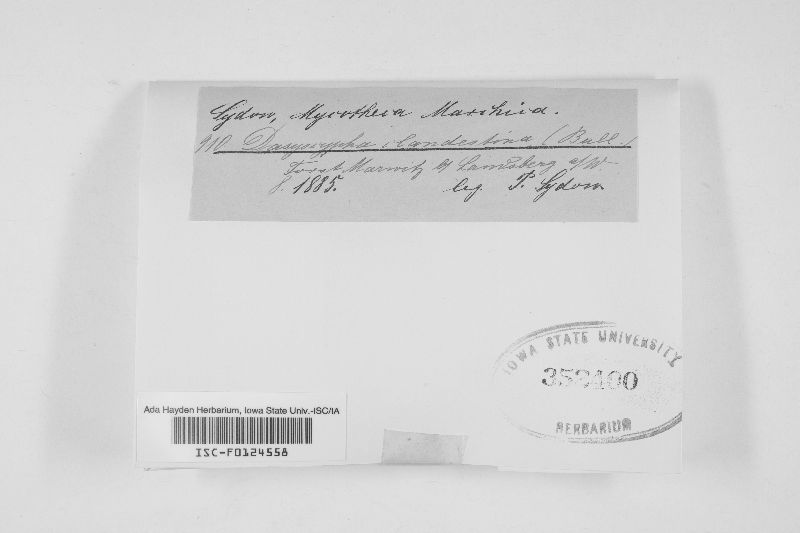 Sydow, Mycotheca Marchica.
910 Dasyscypha clandestina (Bull.)
Forst Marwitz b/ Landsberg a/W.
8. 1885. leg. P. Sydow
IOWA STATE UNIVERSITY
HERBARIUM
Ada Hayden Herbarium, Iowa State Univ.-ISC/IA
ISC-F0124558